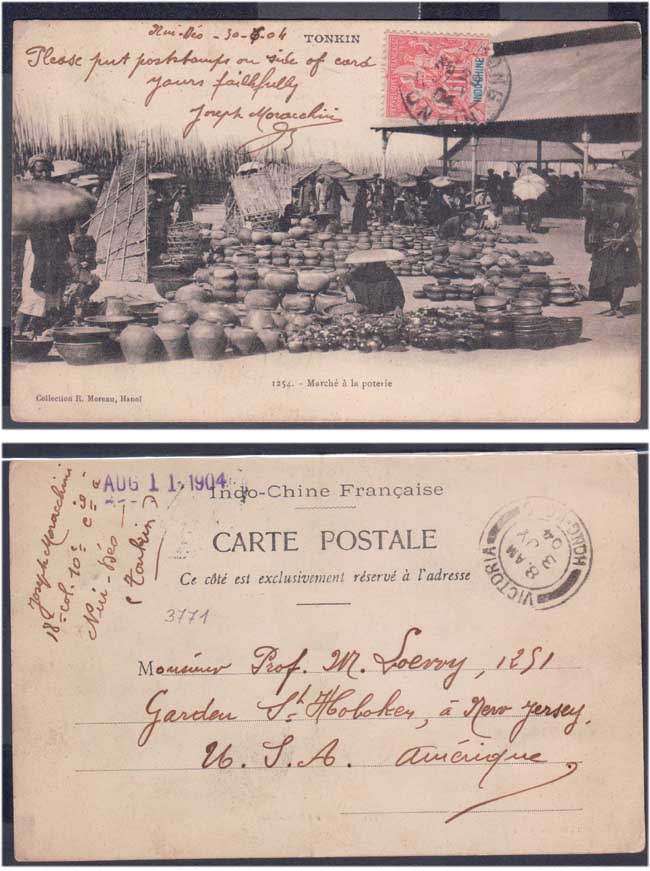 Nui-Déo - 30-6-04
TONKIN
Please put poststamps on side of card
yours faithfully
Joseph Moracchini
INDO-CHINE
10
1254. - Marché à la poterie
Collection R. Moreau, Hanoï
AUG 11 1904
Indo-Chine Française
CARTE POSTALE
Ce côté est exclusivement réservé à l'adresse
VICTORIA
HONG-KONG
8 AM
3 JY
04
Joseph Moracchini
18e col. 10e cie
Nui-Déo
(Tonkin)
3771
Monsieur Prof. M. Loevvy, 1251
Garden St. Hoboken, à New Jersey,
U. S. A. Amérique